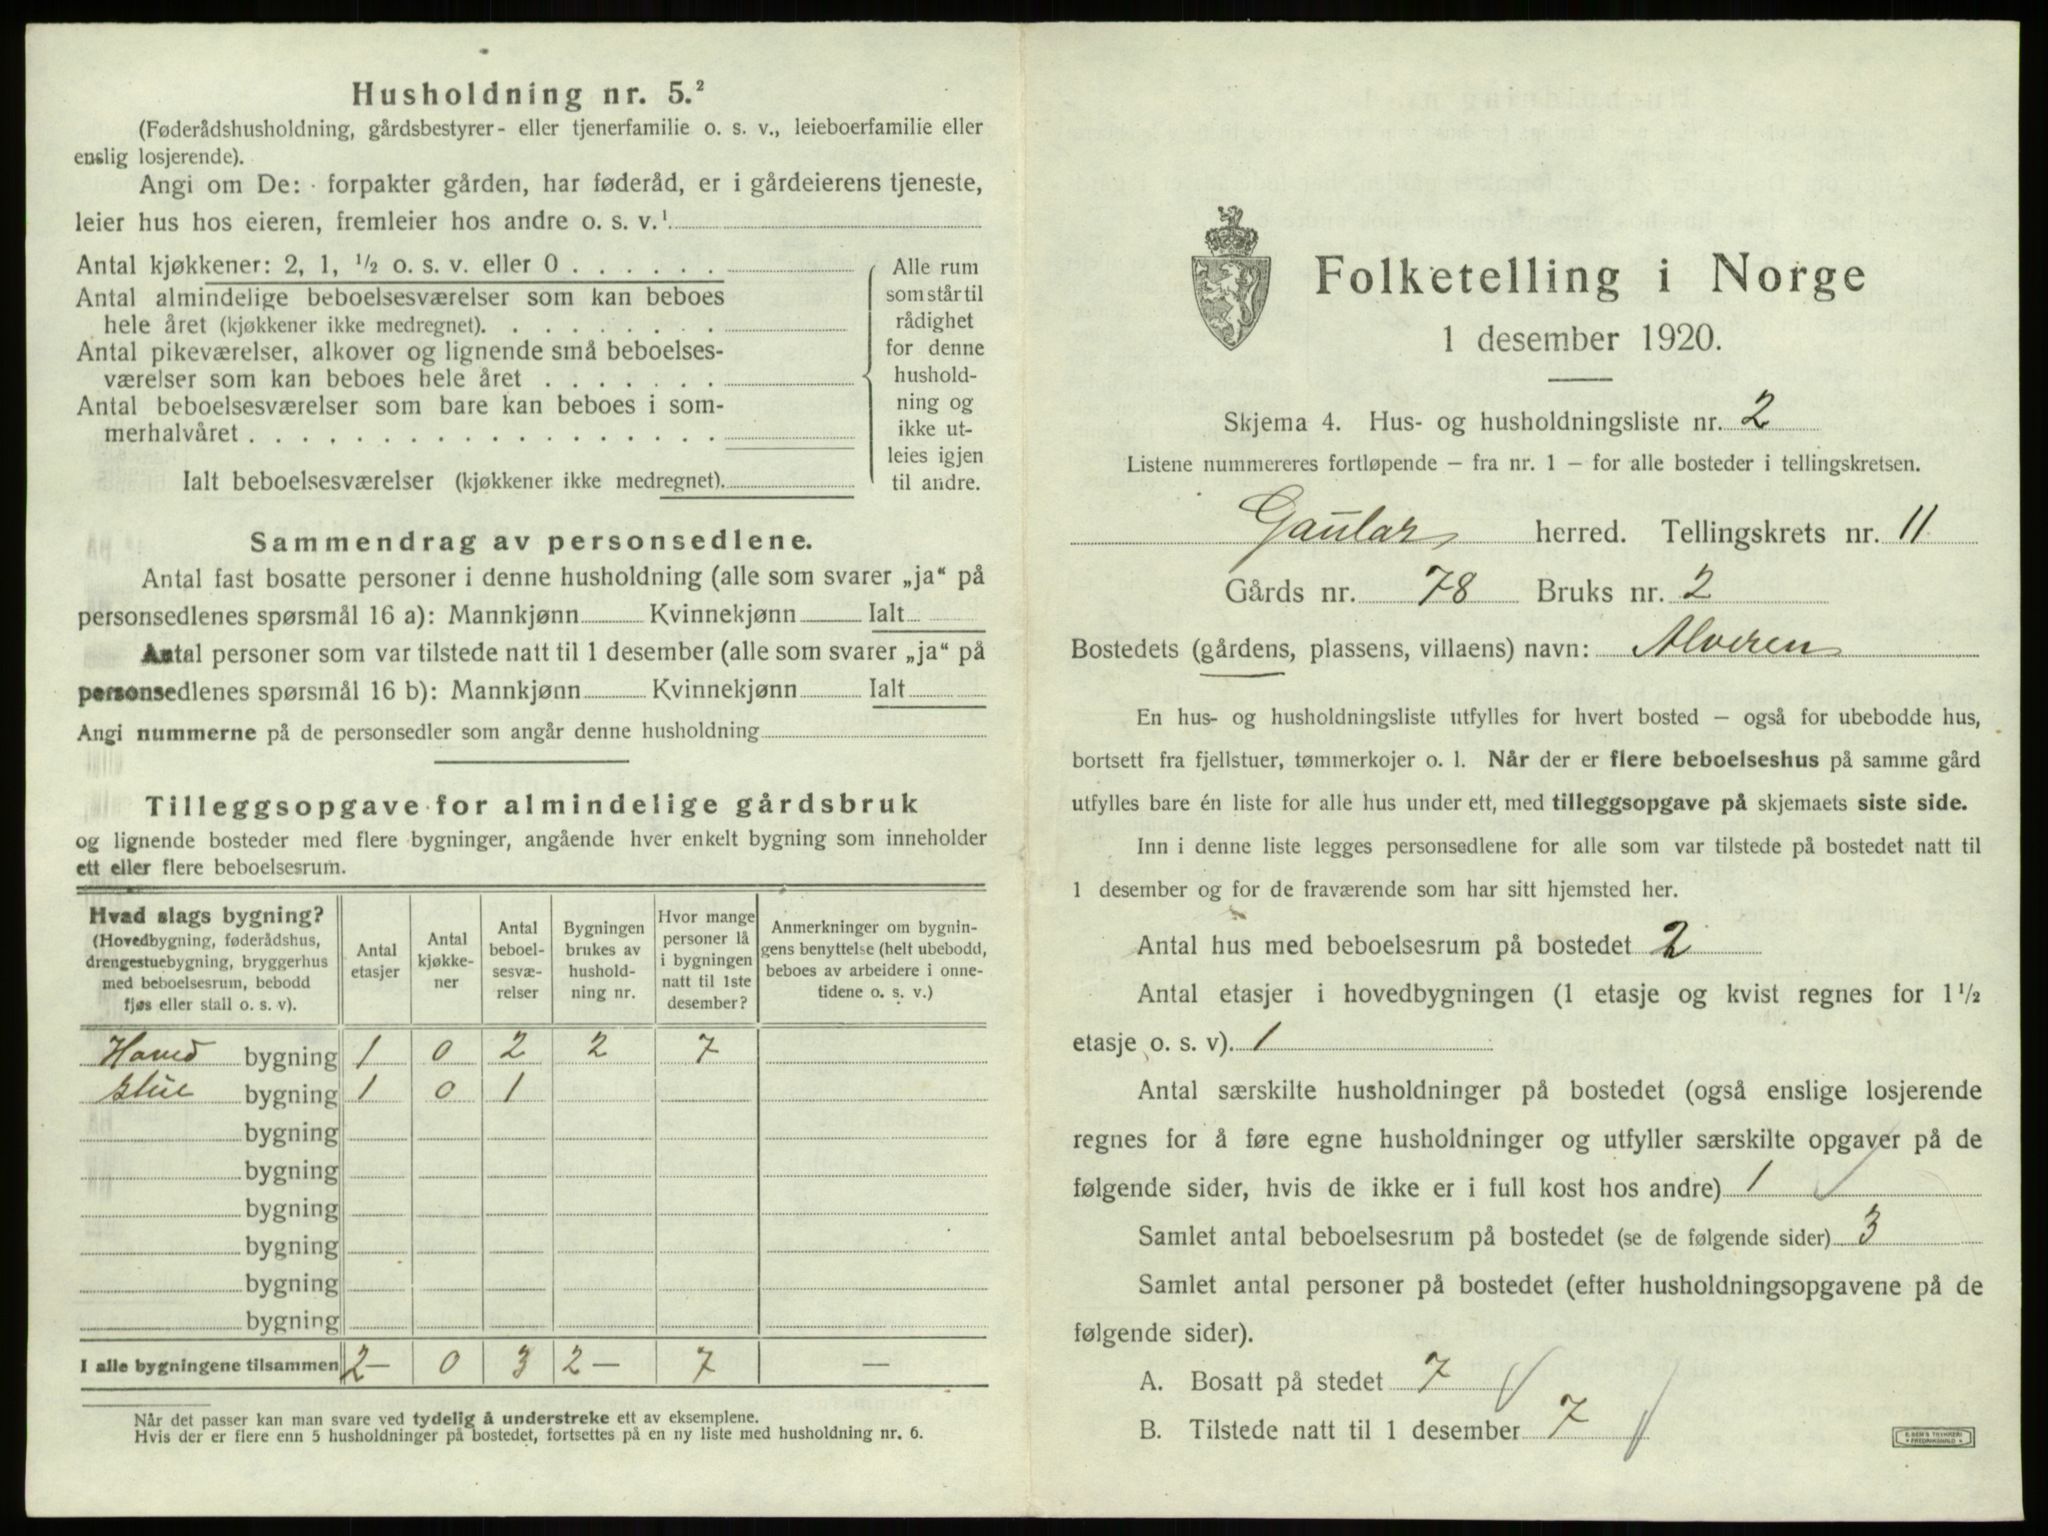 Husholdning nr. 5.²
(Føderådshusholdning, gårdsbestyrer- eller tjenerfamilie o. s. v., leieboerfamilie eller
enslig losjerende).
Angi om De: forpakter gården, har føderåd, er i gårdeierens tjeneste,
leier hus hos eieren, fremleier hos andre o. s. v.¹
Antal kjøkkener: 2, 1, ½ o. s. v. eller 0 . . . . . .
Antal almindelige beboelsesværelser som kan beboes
hele året (kjøkkener ikke medregnet). . . . . . . . .
Antal pikeværelser, alkover og lignende små beboelses-
værelser som kan beboes hele året . . . . . . .
Antal beboelsesværelser som bare kan beboes i som-
merhalvåret . . . . . . . . . . . . . . . . . .
Ialt beboelsesværelser (kjøkkener ikke medregnet).
Alle rum
som står til
rådighet
for denne
hushold-
ning og
ikke ut-
leies igjen
til andre.
Sammendrag av personsedlene.
Antal fast bosatte personer i denne husholdning (alle som svarer „ja“ på
personsedlenes spørsmål 16 a): Mannkjønn Kvinnekjønn Ialt
Antal personer som var tilstede natt til 1 desember (alle som svarer „ja“ på
personsedlenes spørsmål 16 b): Mannkjønn Kvinnekjønn Ialt
Angi nummerne på de personsedler som angår denne husholdning
Tilleggsopgave for almindelige gårdsbruk
og lignende bosteder med flere bygninger, angående hver enkelt bygning som inneholder
ett eller flere beboelsesrum.
Hvad slags bygning?
(Hovedbygning, føderådshus,
drengestuebygning, bryggerhus
med beboelsesrum, bebodd
fjøs eller stall o. s. v).
Antal
etasjer
Antal
kjøkke-
ner
Antal
beboel-
sesvæ-
relser
Bygningen
brukes av
hushold-
ning nr.
Hvor mange
personer lå
i bygningen
natt til 1ste
desember?
Anmerkninger om bygnin-
gens benyttelse (helt ubebodd,
beboes av arbeidere i onne-
tidene o. s. v.)
Hoved bygning 1 0 2 2 7
stue bygning 1 0 1
bygning
bygning
bygning
bygning
bygning
bygning
I alle bygningene tilsammen 2— 0 3 2— 7 —
Når det passer kan man svare ved tydelig å understreke ett av eksemplene.
Hvis der er flere enn 5 husholdninger på bostedet, fortsettes på en ny liste med husholdning nr. 6.
Folketelling i Norge
1 desember 1920.
Skjema 4. Hus- og husholdningsliste nr. 2
Listene nummereres fortløpende – fra nr. 1 – for alle bosteder i tellingskretsen.
Gaular herred. Tellingskrets nr. 11
Gårds nr. 78 Bruks nr. 2
Bostedets (gårdens, plassens, villaens) navn: Alveren
En hus- og husholdningsliste utfylles for hvert bosted – også for ubebodde hus,
bortsett fra fjellstuer, tømmerkojer o. l. Når der er flere beboelseshus på samme gård
utfylles bare én liste for alle hus under ett, med tilleggsopgave på skjemaets siste side.
Inn i denne liste legges personsedlene for alle som var tilstede på bostedet natt til
1 desember og for de fraværende som har sitt hjemsted her.
Antal hus med beboelsesrum på bostedet 2
Antal etasjer i hovedbygningen (1 etasje og kvist regnes for 1½
etasje o. s. v). 1
Antal særskilte husholdninger på bostedet (også enslige losjerende
regnes for å føre egne husholdninger og utfyller særskilte opgaver på de
følgende sider, hvis de ikke er i full kost hos andre) 1
Samlet antal beboelsesrum på bostedet (se de følgende sider) 3
Samlet antal personer på bostedet (efter husholdningsopgavene på de
følgende sider).
A. Bosatt på stedet 7
B. Tilstede natt til 1 desember 7